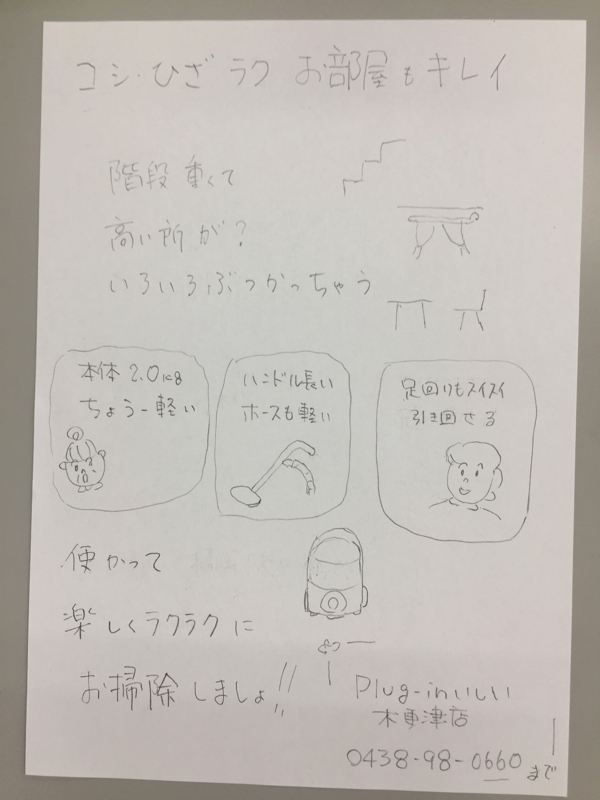 コシ・ひざ ラク お部屋もキレイ
階段 重くて
高い所が?
いろいろぶつかっちゃう
本体 2.0kg
ちょう軽い
ハンドル長い
ホースも軽い
足回りもスイスイ
引き回せる
使かって
楽しくラクラクに
お掃除しましょ!!
Plug-inいしい
木更津店
0438-98-0660 まで